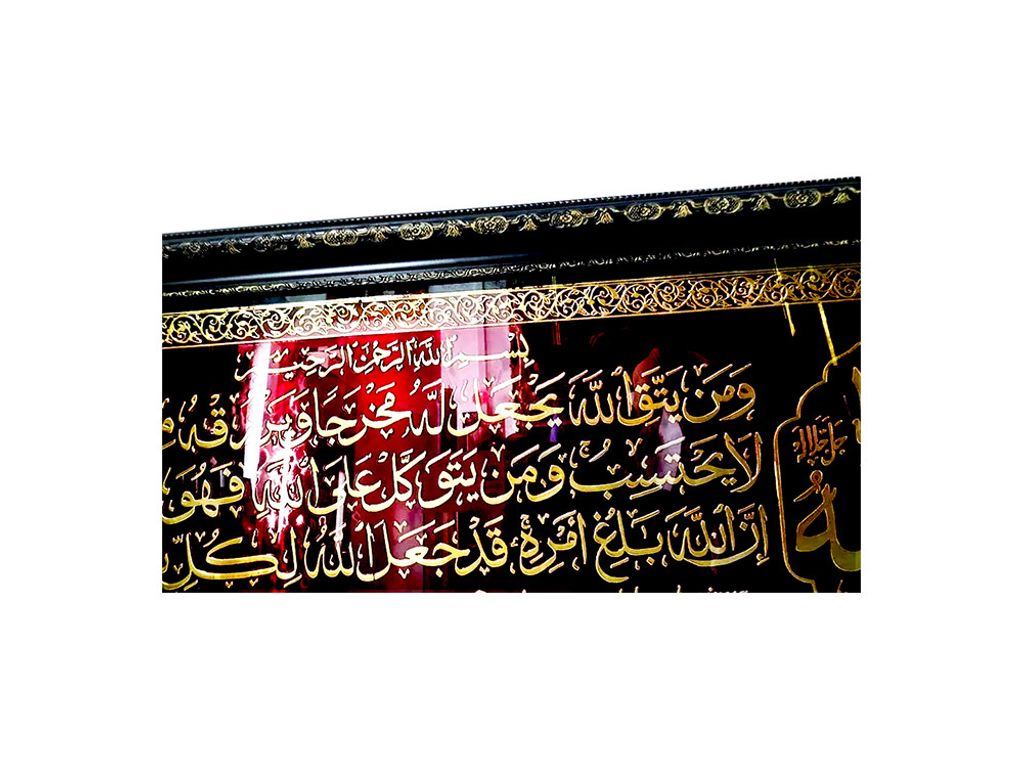 بِسْمِ اللَّهِ الرَّحْمَٰنِ الرَّحِيمِ
وَمَن يَتَّقِ اللَّهَ يَجْعَل لَّهُ مَخْرَجًا وَيَرْزُقْهُ
لَا يَحْتَسِبُ وَمَن يَتَوَكَّلْ عَلَى اللَّهِ فَهُوَ
إِنَّ اللَّهَ بَالِغُ أَمْرِهِ قَدْ جَعَلَ اللَّهُ لِكُلِّ
جل جلاله